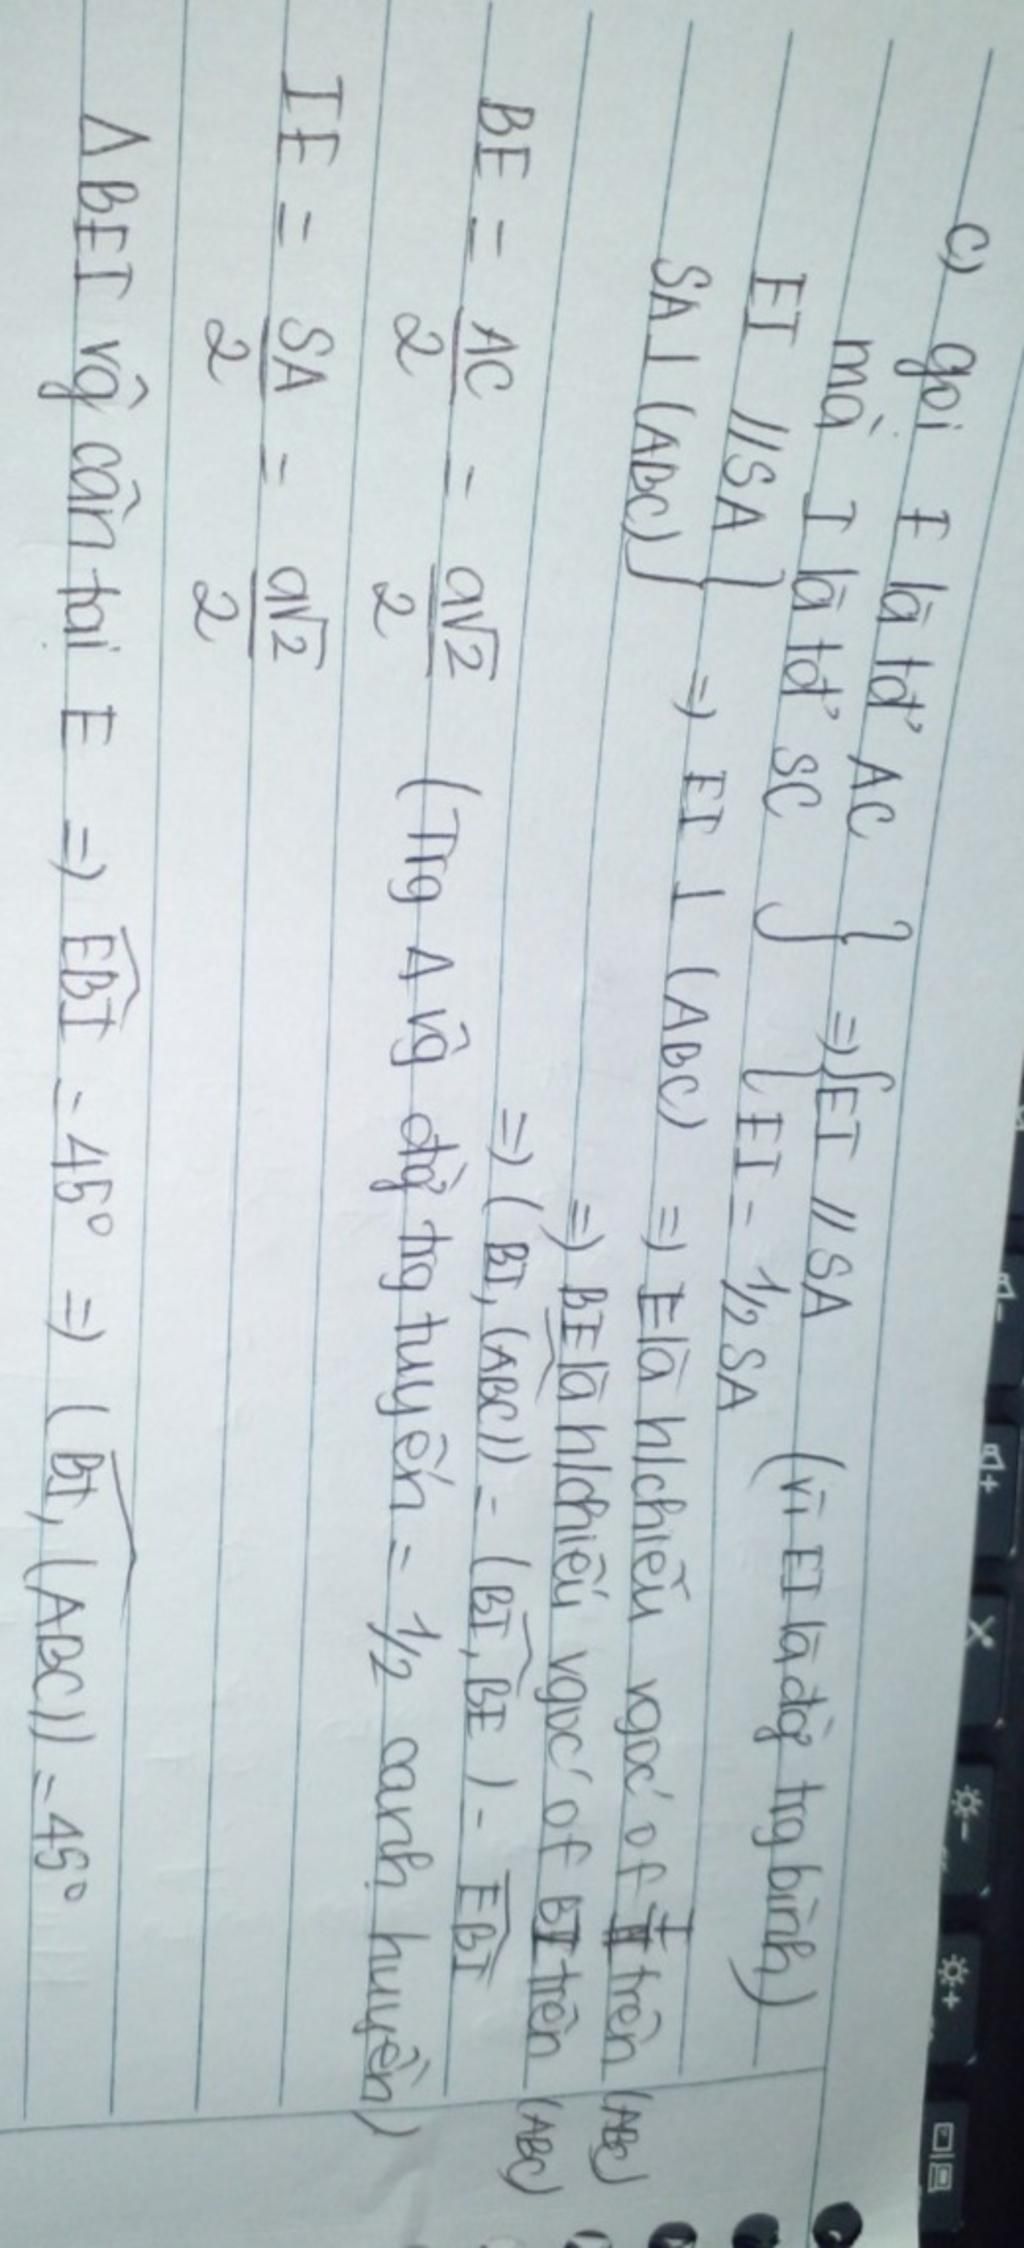 c) gọi E là tđ' AC } => { EI // SA
mà I là tđ' SC } { EI = 1/2 SA (vì EI là đg` trg bình)
EI // SA }
SA ⊥ (ABC) } => EI ⊥ (ABC) => E là h/chiếu vgoc' of I trên (ABC)
=> BE là h/chiếu vgoc' of BI trên (ABC)
=> (BI, (ABC)) = (BI, BE) = EBI
BE = AC/2 = a√2/2 (Trg Δ vg đg` trg tuyến = 1/2 cạnh huyền)
IE = SA/2 = a√2/2
Δ BEI vg cân tại E => EBI = 45° => (BI, (ABC)) = 45°